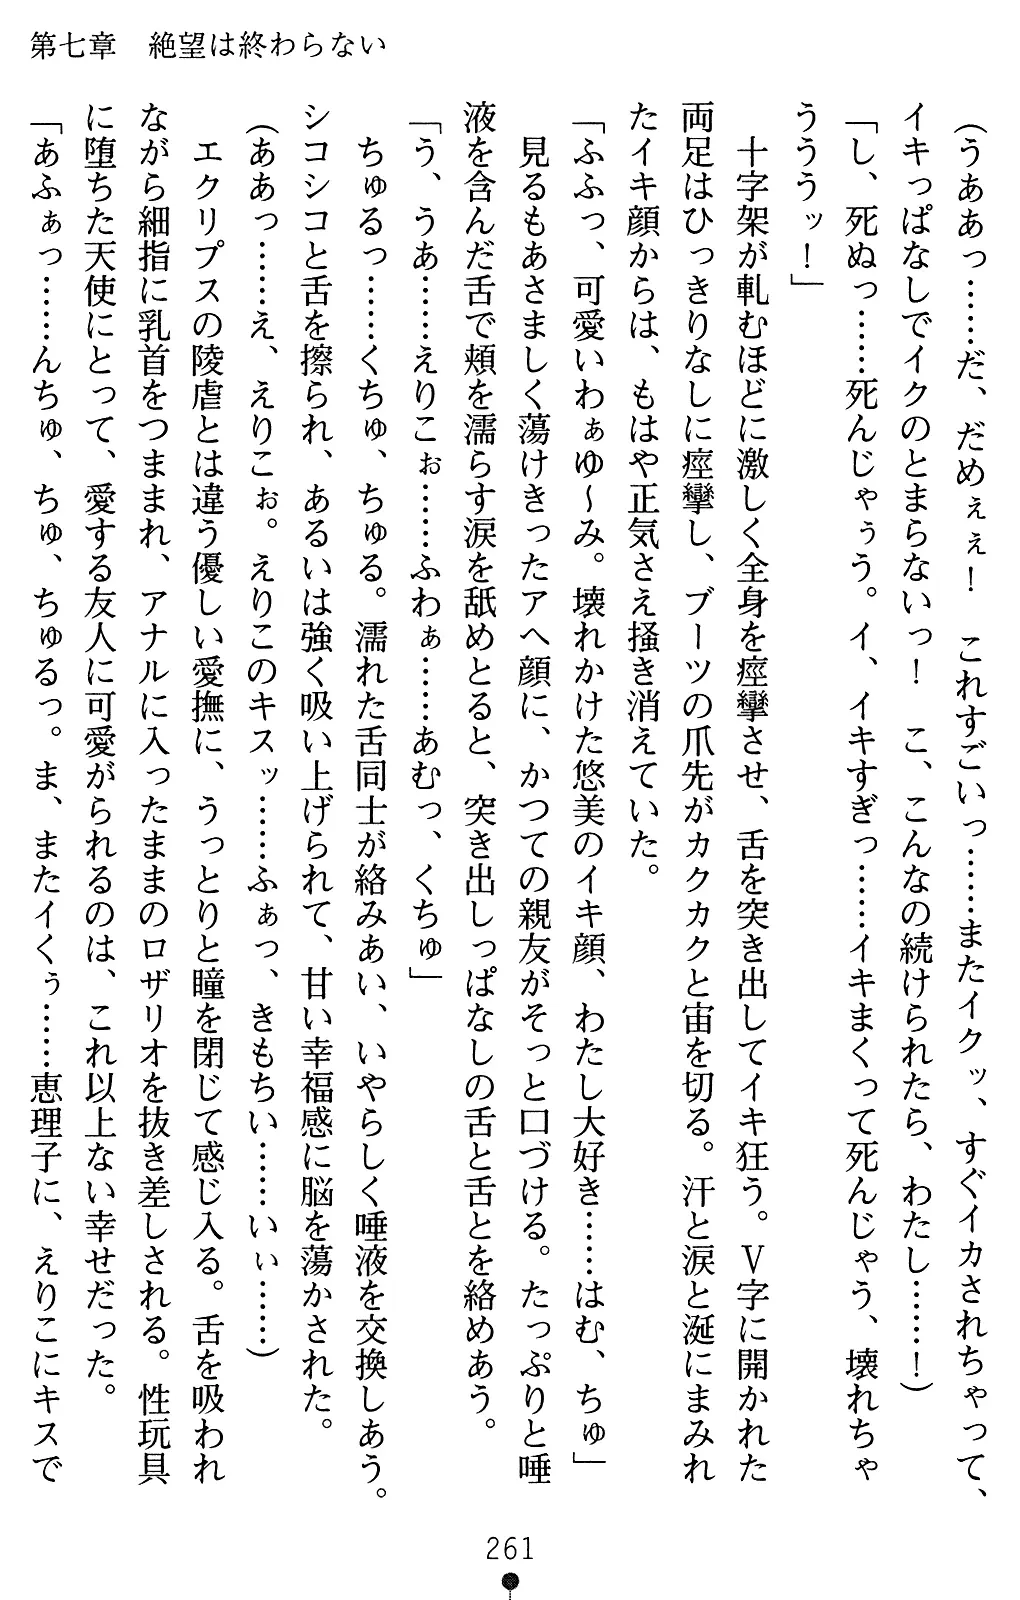 第七章　絶望は終わらない
(うああっ……だ、だめぇぇ！　これすごいっ……またイクッ、すぐイカされちゃって、
イキっぱなしでイクのとまらないっ！　こ、こんなの続けられたら、わたし……！)
「し、死ぬっ……死んじゃぅう。イ、イキすぎっ……イキまくって死んじゃう、壊れちゃ
うううッ！」
　十字架が軋むほどに激しく全身を痙攣させ、舌を突き出してイキ狂う。Ｖ字に開かれた
両足はひっきりなしに痙攣し、ブーツの爪先がカクカクと宙を切る。汗と涙と涎にまみれ
たイキ顔からは、もはや正気さえ掻き消えていた。
「ふふっ、可愛いわぁゆ～み。壊れかけた悠美のイキ顔、わたし大好き……はむ、ちゅ」
　見るもあさましく蕩けきったアヘ顔に、かつての親友がそっと口づける。たっぷりと唾
液を含んだ舌で頬を濡らす涙を舐めとると、突き出しっぱなしの舌と舌とを絡めあう。
「う、うあ……えりこぉ……ふわぁ……あむっ、くちゅ」
　ちゅるっ……くちゅ、ちゅる。濡れた舌同士が絡みあい、いやらしく唾液を交換しあう。
シコシコと舌を擦られ、あるいは強く吸い上げられて、甘い幸福感に脳を蕩かされた。
(ああっ……え、えりこぉ。えりこのキスッ……ふぁっ、きもちい……いぃ……)
　エクリプスの陵虐とは違う優しい愛撫に、うっとりと瞳を閉じて感じ入る。舌を吸われ
ながら細指に乳首をつままれ、アナルに入ったままのロザリオを抜き差しされる。性玩具
に堕ちた天使にとって、愛する友人に可愛がられるのは、これ以上ない幸せだった。
「あふぁっ……んちゅ、ちゅ、ちゅるっ。ま、またイくぅ……恵理子に、えりこにキスで
261